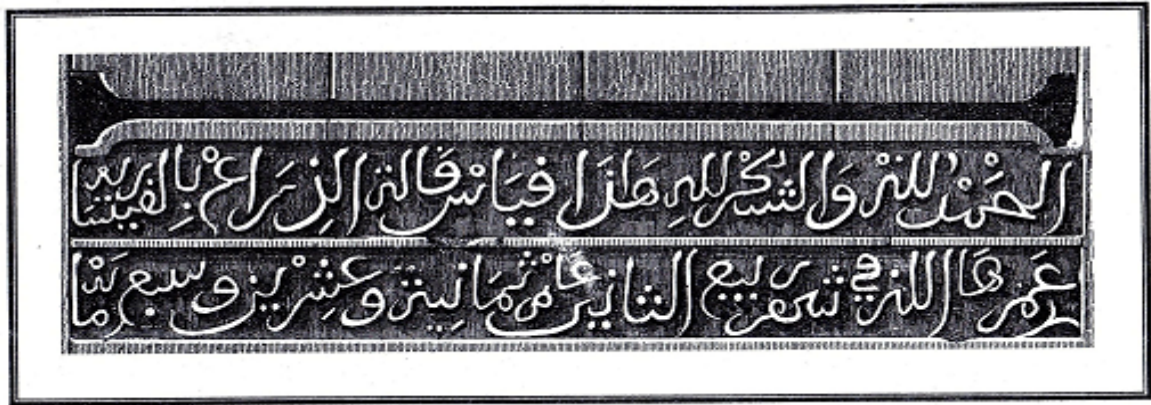 الحَمْدُ للهِ وَالشُكْرُ للهِ هَاذَا قِيَاسْ قَالة الذِرَاعْ بِالقيسارية
عَمرهَا الله في شهر ربيع الثاني عَامْ ثمَانِية وَعِشْرِين وسبع مائة